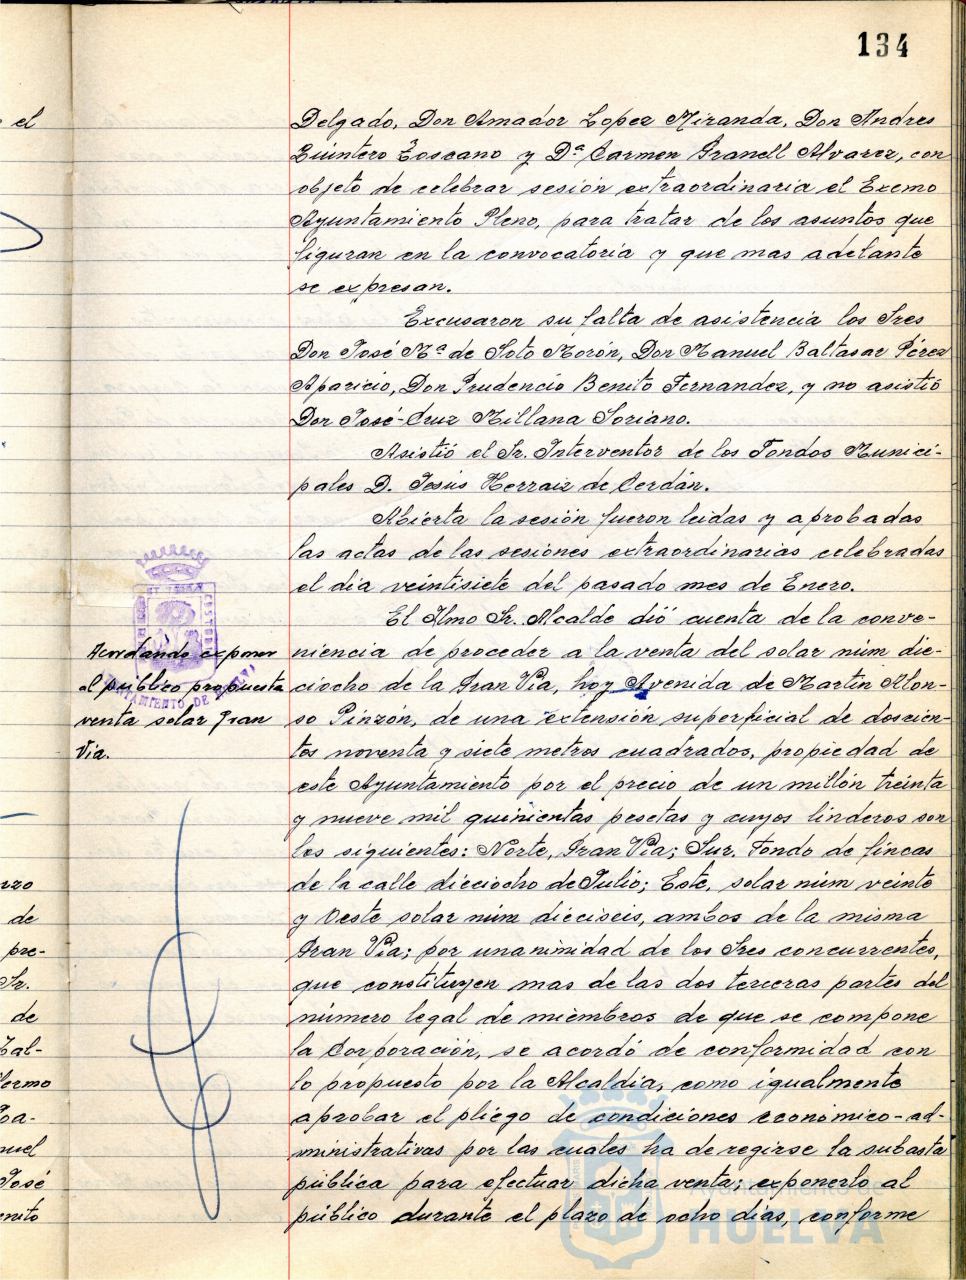 134
Delgado, Don Amador Lopez Miranda, Don Andres
Quintero Toscano y Dª Carmen Granell Alvarez, con
objeto de celebrar sesión extraordinaria el Excmo
Ayuntamiento Pleno, para tratar de los asuntos que
figuran en la convocatoria y que mas adelante
se expresan.
Excusaron su falta de asistencia los Sres
Don José Mª de Soto Morón, Don Manuel Baltasar Pérez
Aparicio, Don Prudencio Benito Fernandez, y no asistió
Don José-Cruz Millana Soriano.
Asistió el Sr. Interventor de los Fondos Munici-
pales D. Jesús Herraiz de Cerdán.
Abierta la sesión fueron leidas y aprobadas
las actas de las sesiones extraordinarias celebradas
el dia veintisiete del pasado mes de Enero.
El Ilmo Sr. Alcalde dió cuenta de la conve-
niencia de proceder a la venta del solar núm die-
ciocho de la Gran Via, hoy Avenida de Martin Alon-
so Pinzón, de una extensión superficial de doscien-
tos noventa y siete metros cuadrados, propiedad de
este Ayuntamiento por el precio de un millón treinta
y nueve mil quinientas pesetas y cuyos linderos son
los siguientes: Norte, Gran Via; Sur. Fondo de fincas
de la calle dieciocho de Julio; Este, solar núm veinte
y Oeste solar núm dieciseis, ambos de la misma
Gran Via; por unanimidad de los Sres concurrentes,
que constituyen mas de las dos terceras partes del
número legal de miembros de que se compone
la Corporación, se acordó de conformidad con
lo propuesto por la Alcaldia, como igualmente
aprobar el pliego de condiciones económico-ad-
ministrativas por las cuales ha de regirse la subasta
pública para efectuar dicha venta; exponerlo al
público durante el plazo de ocho dias, conforme
Acordando exponer
al público propuesta
venta solar Gran
Via.
AYUNTAMIENTO DE HUELVA
el
de
pre-
Sr.
de
José
Ayuntamiento de
HUELVA